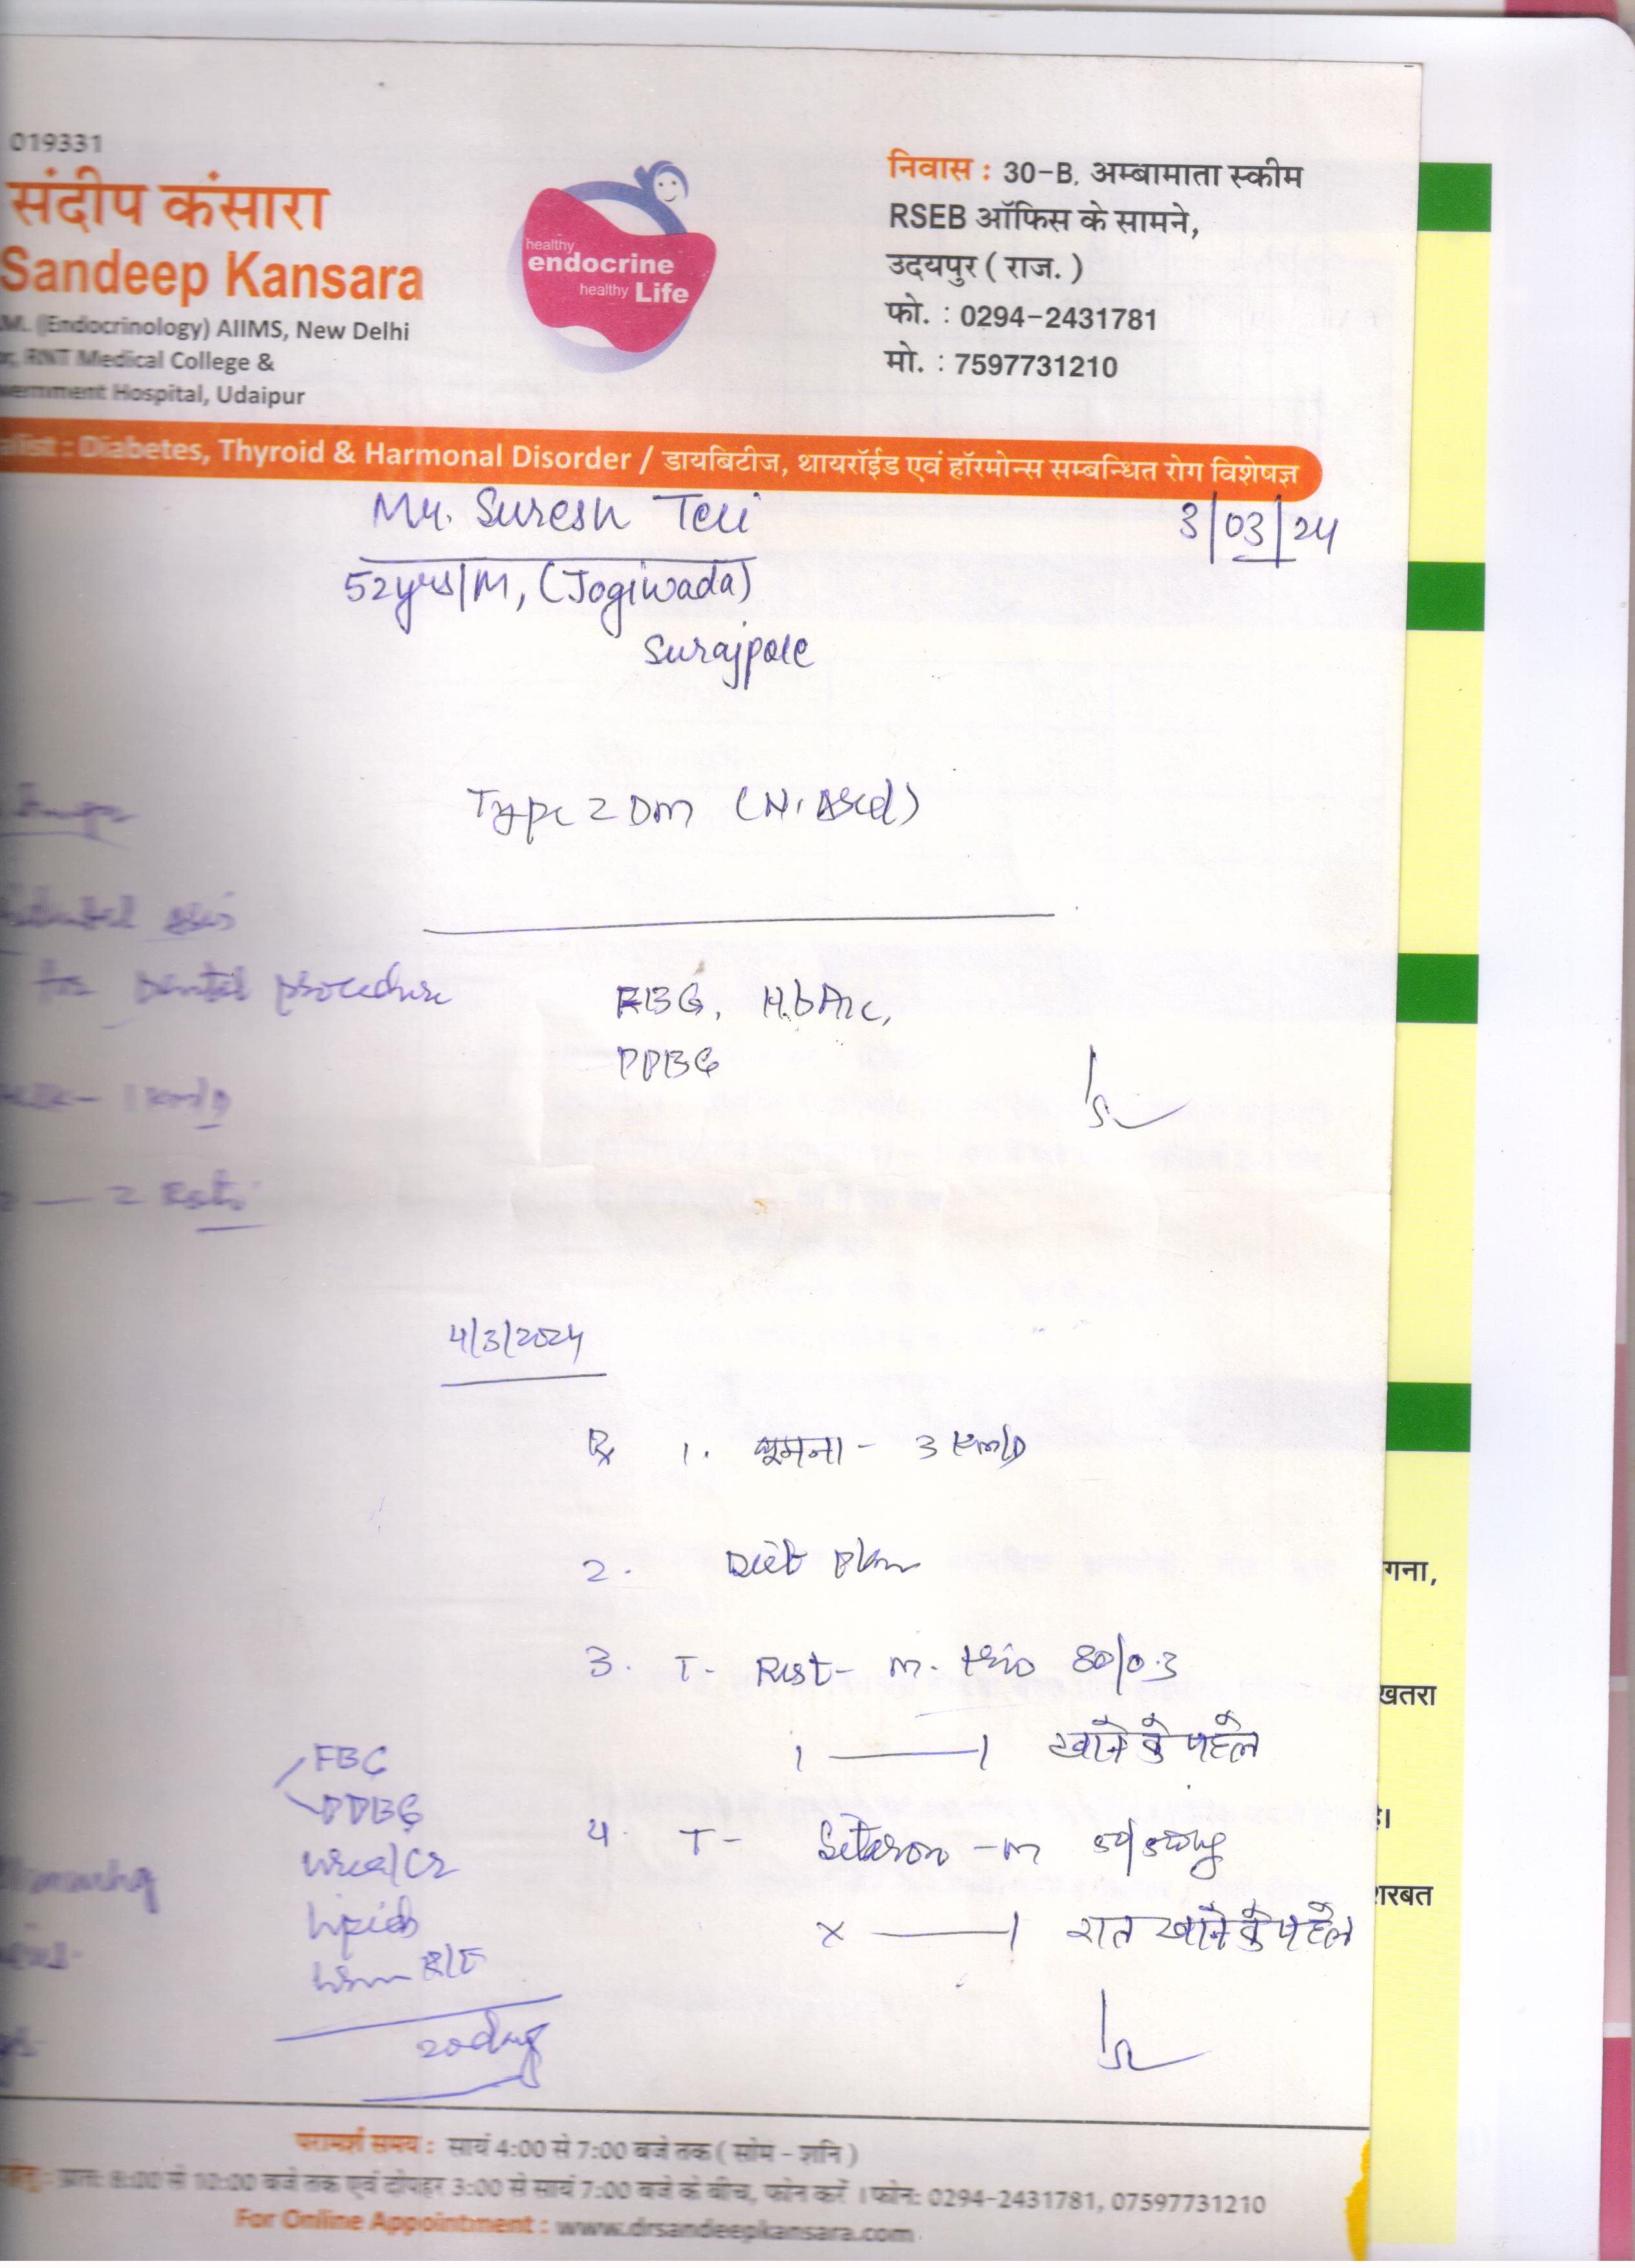 019331
संदीप कंसारा
Sandeep Kansara
M. (Endocrinology) AIIMS, New Delhi
RNT Medical College &
Government Hospital, Udaipur
healthy
endocrine
healthy Life
निवास : 30-B, अम्बामाता स्कीम
RSEB ऑफिस के सामने,
उदयपुर ( राज. )
फो. : 0294-2431781
मो. : 7597731210
alist : Diabetes, Thyroid & Harmonal Disorder / डायबिटीज, थायरॉईड एवं हॉरमोन्स सम्बन्धित रोग विशेषज्ञ
Mr. Suresh Teli
3/03/24
52yrs/M, (Jogiwada)
Surajpole
Type 2 DM
for Dental procedure
FBG, HbA1c,
PPBG
1 km/D
4/3/2024
Rx 1. घूमना - 3 km/D
2. Diet Plan
3. T-
80/0.3
1 —— 1 खाने के पहले
4. T-
-m
x —— 1 रात खाने के पहले
FBG
PPBG
Urea/Cr
Lipids
R/E
20 days
गना,
खतरा
है।
शरबत
परामर्श समय : सायं 4:00 से 7:00 बजे तक ( सोम - शनि )
प्रातः 8:00 से 10:00 बजे तक एवं दोपहर 3:00 से सायं 7:00 बजे के बीच, फोन करें । फोन: 0294-2431781, 07597731210
For Online Appointment : www.drsandeepkansara.com